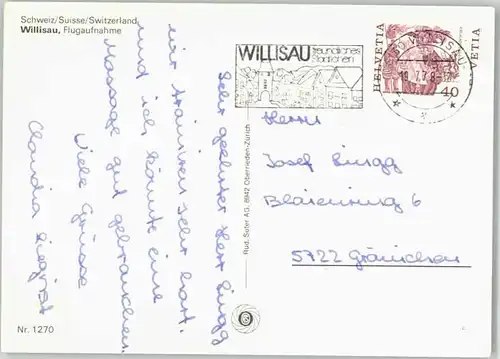 Schweiz/Suisse/Switzerland
Willisau, Flugaufnahme
Sehr geehrter Herr Burgg
wir trainieren sehr hart.
und ich könnte eine
Massage gut gebrauchen.
Viele Grüsse
Claudia Siegrist
Nr. 1270
Rud. Suter AG, 8942 Oberrieden-Zürich
WILLISAU freundliches
Städtchen
HELVETIA
40
HELVETIA
WILLISAU
Herrn
Josef Burgg
6
5722 Gränichen